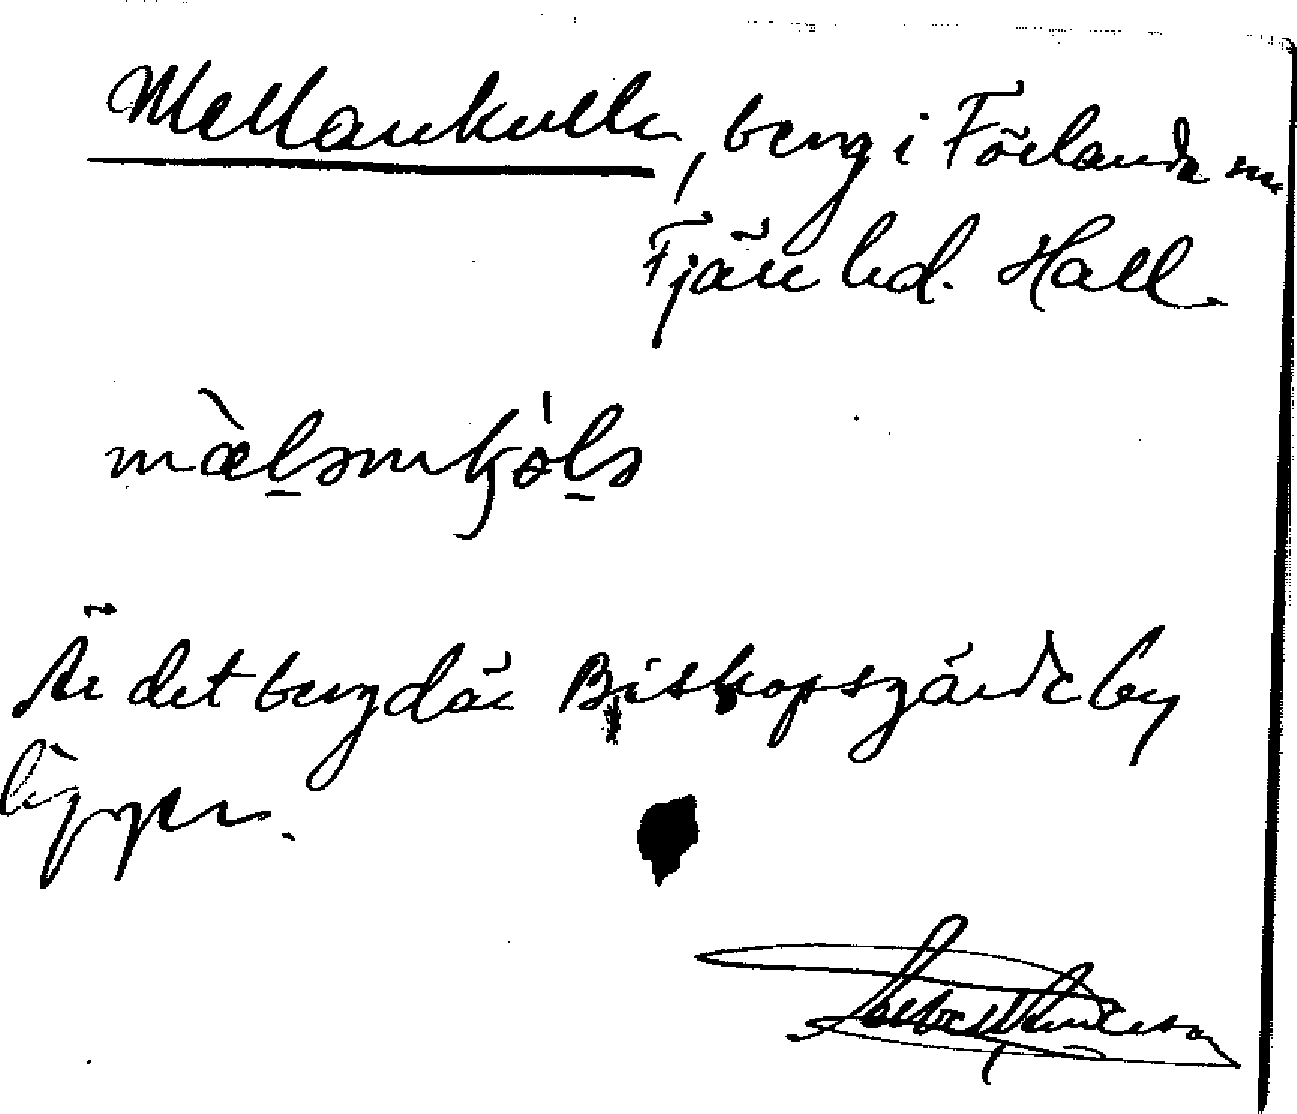 Mellankulla, berg i Förlanda sn
Fjäre hd. Hall.
mæ̀lənkȯlə
Är det berg där Bispsgärde by
ligger.